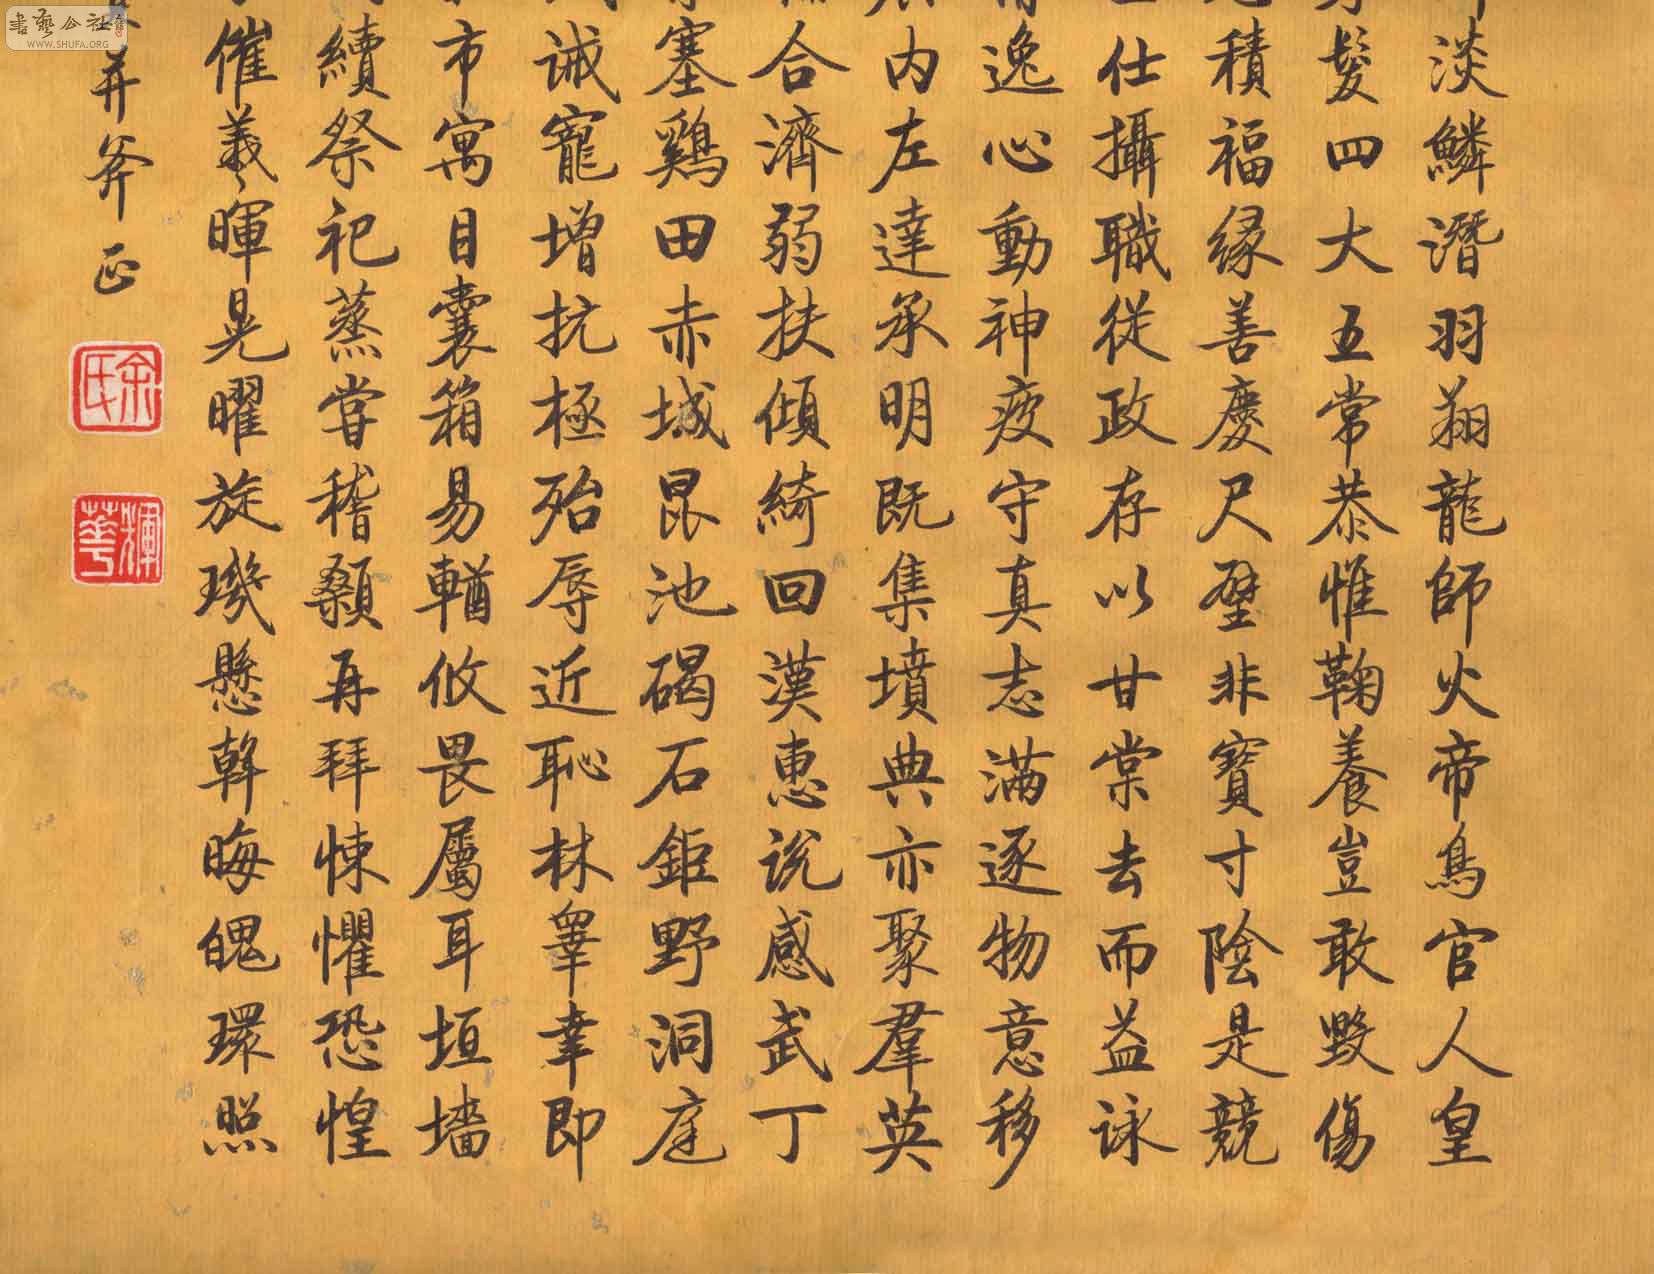 淡鱗潛羽翔龍師火帝鳥官人皇
髮四大五常恭惟鞠養豈敢毀傷
積福緣善慶尺璧非寶寸陰是競
仕攝職從政存以甘棠去而益詠
逸心動神疲守真志滿逐物意移
内左達承明既集墳典亦聚羣英
合濟弱扶傾綺回漢惠說感武丁
塞鷄田赤城昆池碣石鉅野洞庭
誡寵增抗極殆辱近恥林睾幸即
市寓目囊箱易輶攸畏屬耳垣墻
續祭祀蒸嘗稽顙再拜悚懼恐惶
催羲暉晃曜旋璣懸斡晦魄環照
并斧正
余氏
輝華
書藝公社
WWW.SHUFA.ORG